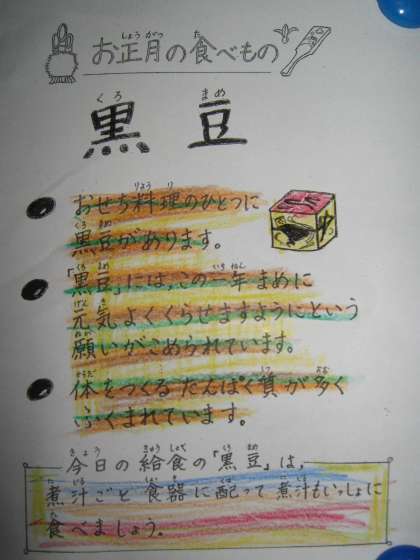 お正月の食べもの
黒豆
おせち料理のひとつに
黒豆があります。
「黒豆」には、この一年まめに
元気よくくらせますようにという
願いがこめられています。
体をつくるたんぱく質が多く
ふくまれています。
今日の給食の「黒豆」は、
煮汁ごと食器に配って煮汁もいっしょに
食べましょう。